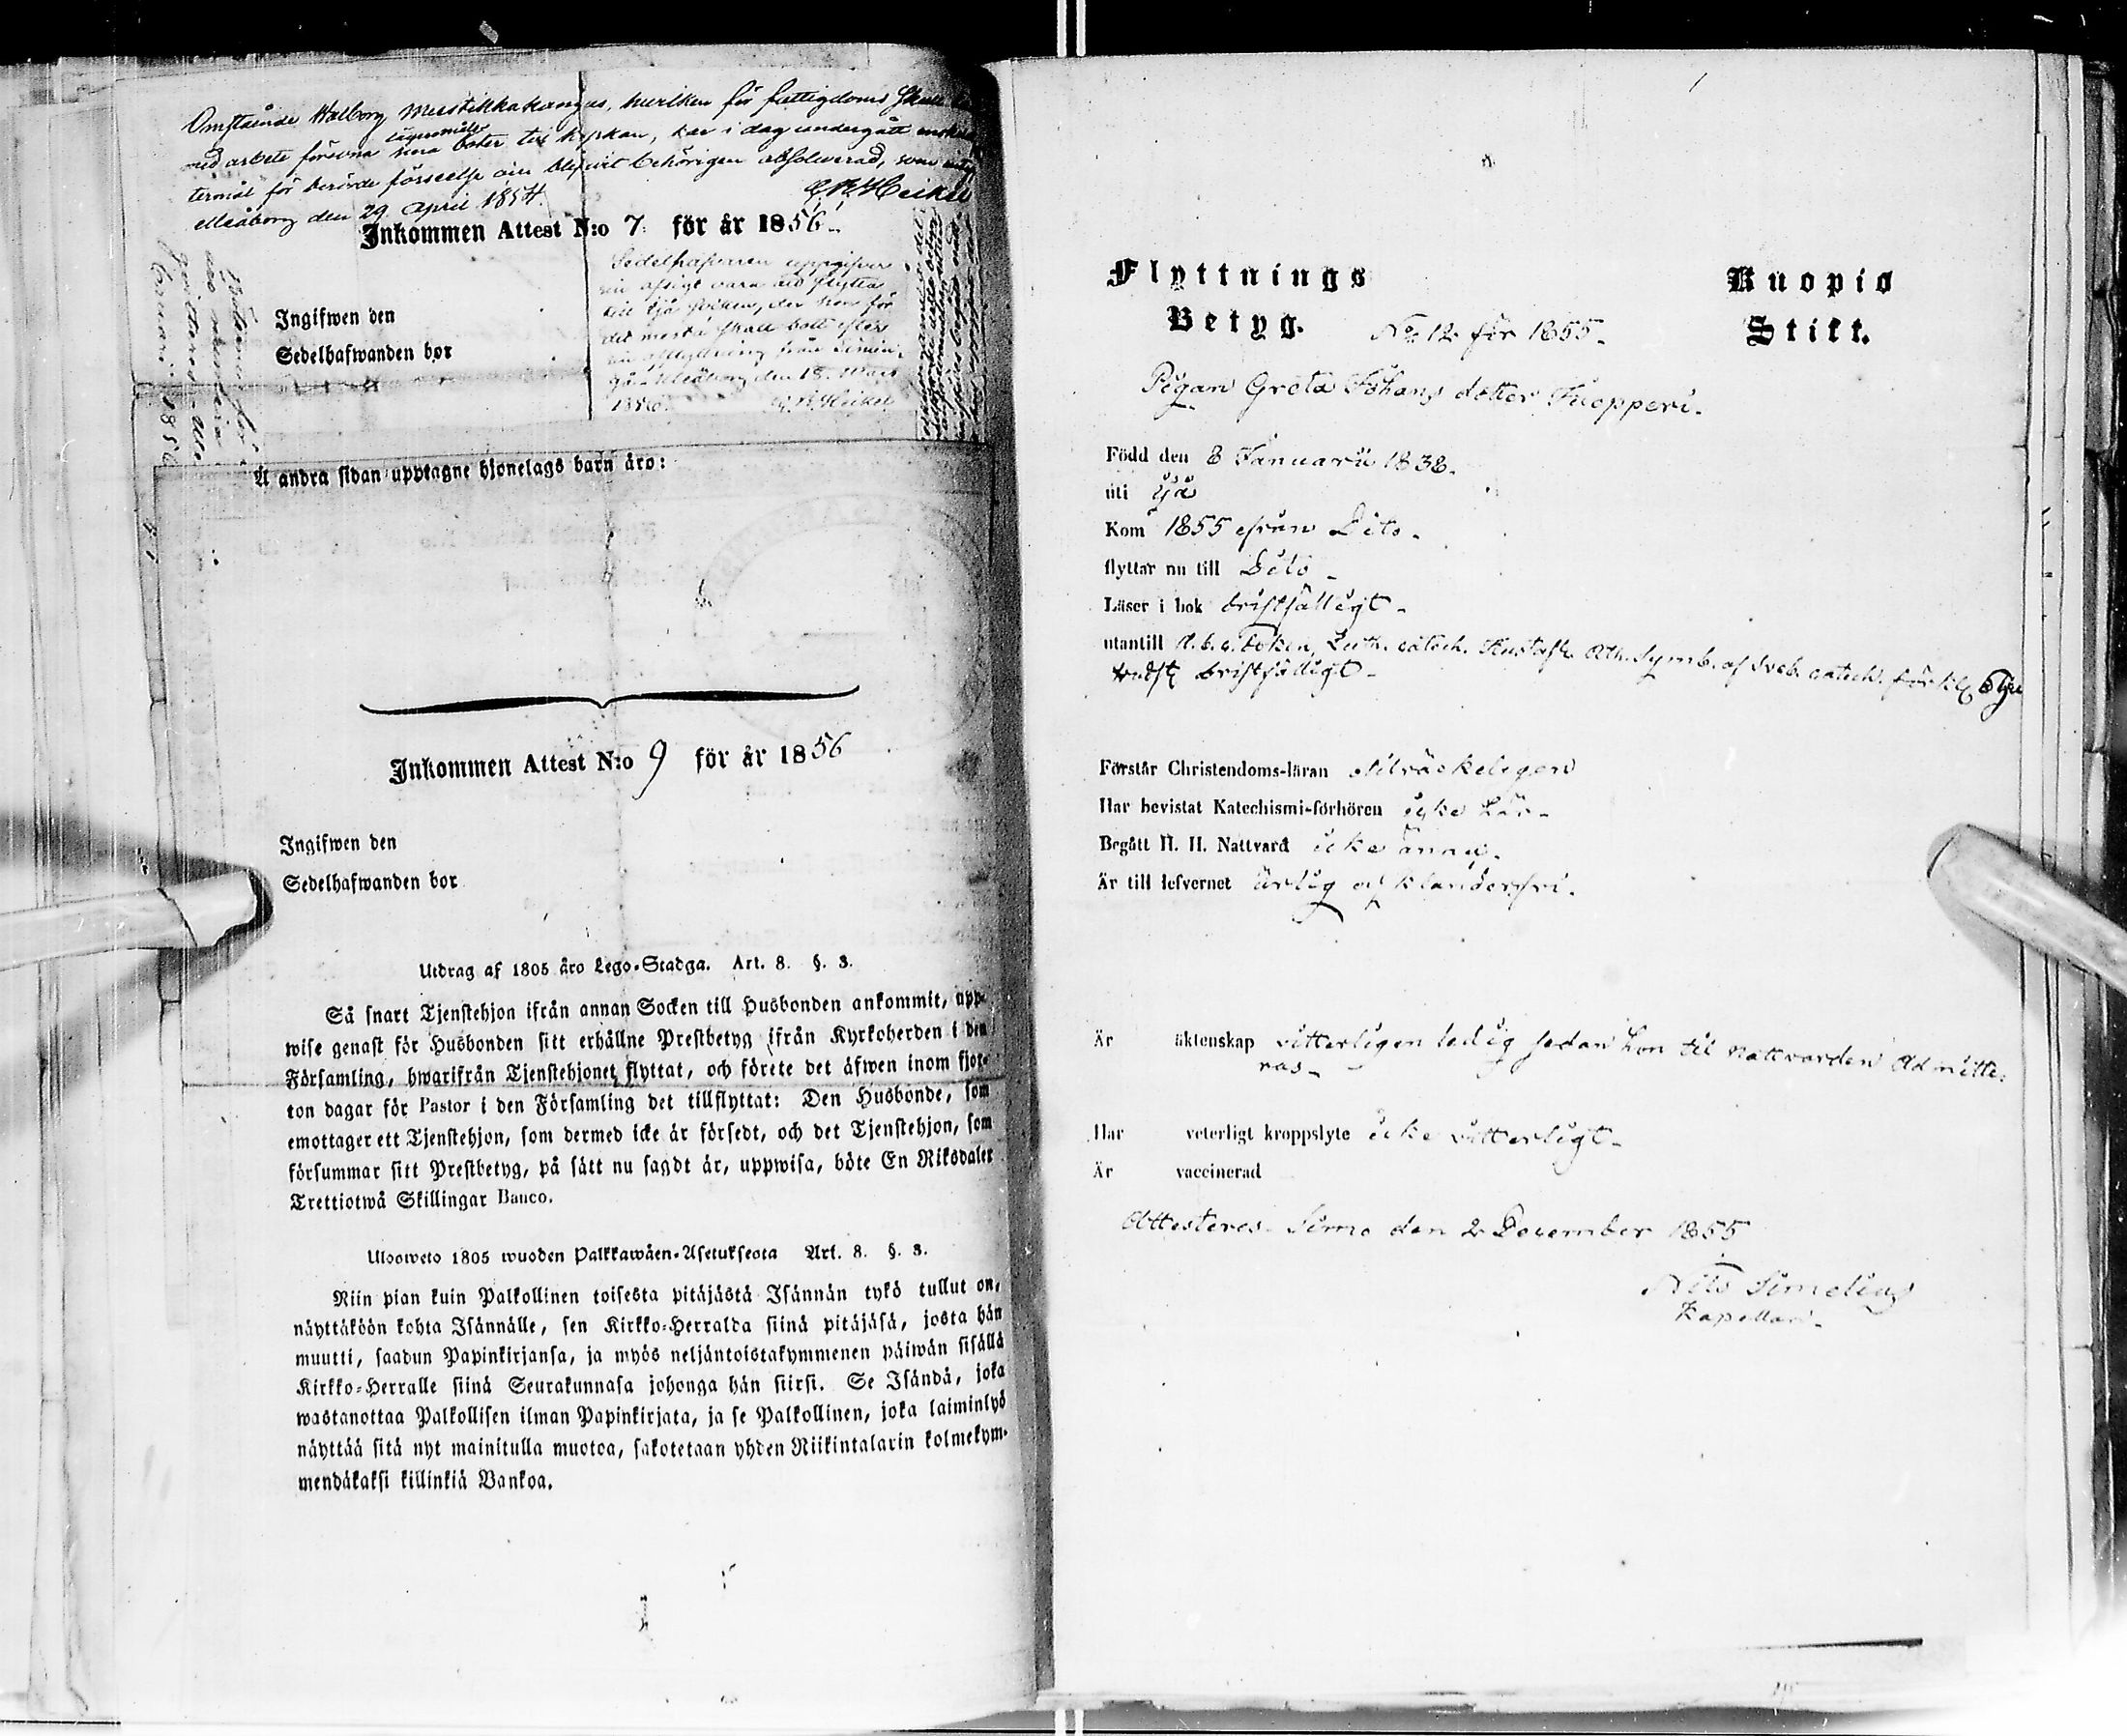 Omstående Walborg Mustikkakangas, hvilken för fattigdoms skull
med arbete försona sina lägersmåls böter till kyrkan, har i dag undergått enskildt
termål för berörde förseelse och blifvit behörigen absolverad, som
Uleåborg den 29 April 1854. Heikel
Inkommen Attest N:o 7 för år 1856
Sedelhafvaren uppgifver
sin afsigt vara att flytta
till Ijå socken, der hon för
det mesta skall bott efter
sin afflyttning från Limin-
gå. Uleåborg den 18 Mars
1856. Heikel
Ingifwen den
Sedelhafwanden bor
Å andra sidan upptagne hjonelags barn äro:
Inkommen Attest N:o 9 för år 1856
Ingifwen den
Sedelhafwanden bor
Utdrag af 1805 års Lego-Stadga. Art. 8. §. 3.
Så snart Tjenstehjon ifrån annan Socken till Husbonden ankommit, upp-
wise genast för Husbonden sitt erhållne Prestbetyg ifrån Kyrkoherden i den
Församling, hwarifrån Tjenstehjonet flyttat, och förete det äfwen inom fjor-
ton dagar för Pastor i den Församling det tillflyttat: Den Husbonde, som
emottager ett Tjenstehjon, som dermed icke är försedt, och det Tjenstehjon, som
försummar sitt Prestbetyg, på sätt nu sagdt är, uppwisa, böte En Riksdaler
Trettiotwå Skillingar Banco.
Ulosweto 1805 wuoden Palkkawäen-Asetuksesta Art. 8. §. 3.
Niin pian kuin Palkollinen toisesta pitäjästä Isännän tykö tullut on,
näyttäköön kohta Isännälle, sen Kirkko-Herralda siinä pitäjäsä, josta hän
muutti, saadun Papinkirjansa, ja myös neljäntoistakymmenen päiwän sisällä
Kirkko-Herralle siinä Seurakunnasa johonga hän siirsi. Se Isändä, joka
wastanottaa Palkollisen ilman Papinkirjata, ja se Palkollinen, joka laiminlyö
näyttää sitä nyt mainitulla muotoa, sakotetaan yhden Riikintalarin kolmekym-
mendäkaksi killinkiä Bankoa.
Flyttnings Kuopio
Betyg. No 12 för 1855. Stift.
Pigan Greta Johans dotter Kuopperi.
Född den 8 Januarii 1838.
uti Ijå
Kom 1855 ifrån Dito.
flyttar nu till Dito
Läser i bok bristfälligt.
utantill A.b.c. boken, Luth. catech. Hustafl. Ath. Symb. af Sveb. catech. förkl.
bristfälligt.
Förstår Christendoms-läran tilräckeligen
Har bevistat Katechismi-förhören icke här.
Begått H. H. Nattvard icke ännu.
Är till lefvernet ärlig och klanderfri.
Är äktenskap vitterligen ledig sedan hon til nattvarden admitte-
ras.
Har veterligt kroppslyte icke vitterligt.
Är vaccinerad
Attesteres. Simo den 2 December 1855
Nils Simelius
Kapellan.